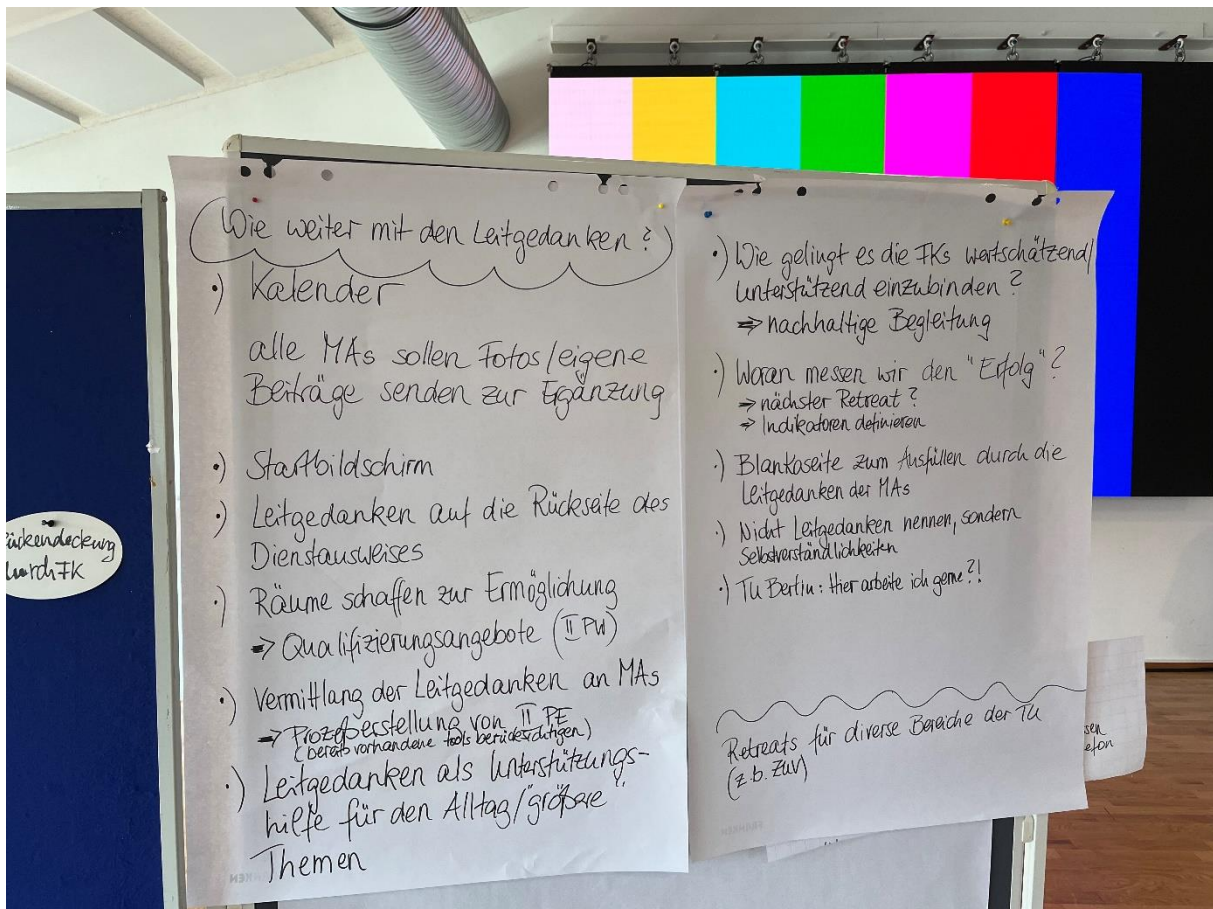 Wie weiter mit den Leitgedanken?
·) Kalender
alle MAs sollen Fotos/eigene
Beiträge senden zur Ergänzung
·) Startbildschirm
·) Leitgedanken auf die Rückseite des
Dienstausweises
·) Räume schaffen zur Ermöglichung
⇒ Qualifizierungsangebote (II PW)
·) Vermittlung der Leitgedanken an MAs
→ Prozeßerstellung von II PE
(bereits vorhandene tools berücksichtigen)
·) Leitgedanken als Unterstützungs-
hilfe für den Alltag/"größere"
Themen
·) Wie gelingt es die FKs wertschätzend/
unterstützend einzubinden?
⇒ nachhaltige Begleitung
·) Woran messen wir den "Erfolg"?
⇒ nächster Retreat?
⇒ Indikatoren definieren
·) Blankoseite zum Ausfüllen durch die
Leitgedanken der MAs
·) Nicht Leitgedanken nennen, sondern
Selbstverständlichkeiten
·) TU Berlin: Hier arbeite ich gerne?!
Retreats für diverse Bereiche der TU
(z.b. ZUV)
Rückendeckung
durch FK